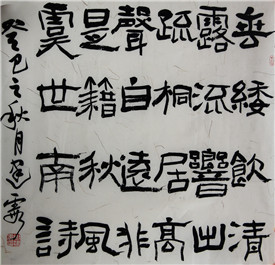 垂緌飲清
露流響出
疏桐居高
聲自遠非
是籍秋風
虞世南詩
癸巳之秋月